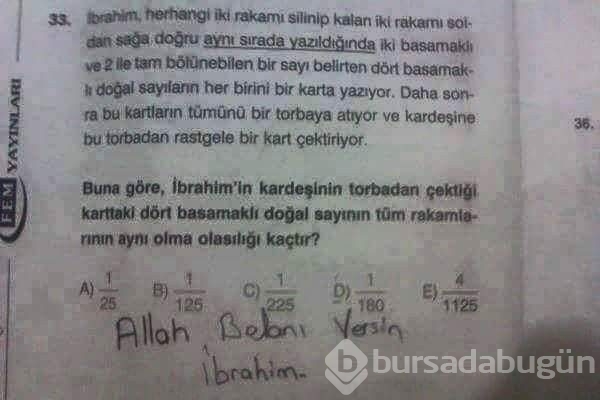 33. İbrahim, herhangi iki rakamı silinip kalan iki rakamı sol-
dan sağa doğru aynı sırada yazıldığında iki basamaklı
ve 2 ile tam bölünebilen bir sayı belirten dört basamak-
lı doğal sayıların her birini bir karta yazıyor. Daha son-
ra bu kartların tümünü bir torbaya atıyor ve kardeşine
bu torbadan rastgele bir kart çektiriyor.
36.
Buna göre, İbrahim'in kardeşinin torbadan çektiği
karttaki dört basamaklı doğal sayının tüm rakamla-
rının aynı olma olasılığı kaçtır?
A) 1/25 B) 1/125 C) 1/225 D) 1/180 E) 4/1125
Allah Belanı Versin
İbrahim.
FEM YAYINLARI
b bursadabugün